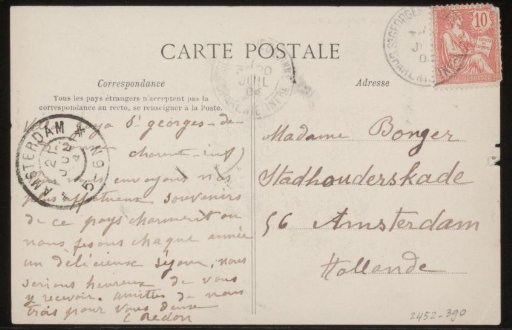 CARTE POSTALE
Correspondance
Tous les pays étrangers n'acceptent pas la
correspondance au recto, se renseigner à la Poste.
Adresse
10
AMSTERDAM
St georges-de-
charent-inf)
envoyons nos
plus affectueux souvenirs
de ce pays charmant ou
nous fesons chaque année
un délicieux séjour, nous
serions heureux de vous
y recevoir. amitiés de nous
trois pour vous deux
C Redon
Madame Bonger
Stadhouderskade
56 Amsterdam
Hollande
2452-390